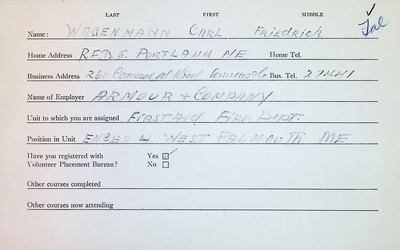 LAST FIRST MIDDLE
Name: WAGENMANN CARL Friedrich
Home Address RFD 5 PORTLAND ME Home Tel.
Business Address 260 Commercial Street Bus. Tel. 27441
Name of Employer ARMOUR + COMPANY
Unit to which you are assigned FIRST AID FIRE DEPT.
Position in Unit ENGEN 4 WEST FALMOUTH ME
Have you registered with Yes ☑
Volunteer Placement Bureau? No ☐
Other courses completed
Other courses now attending